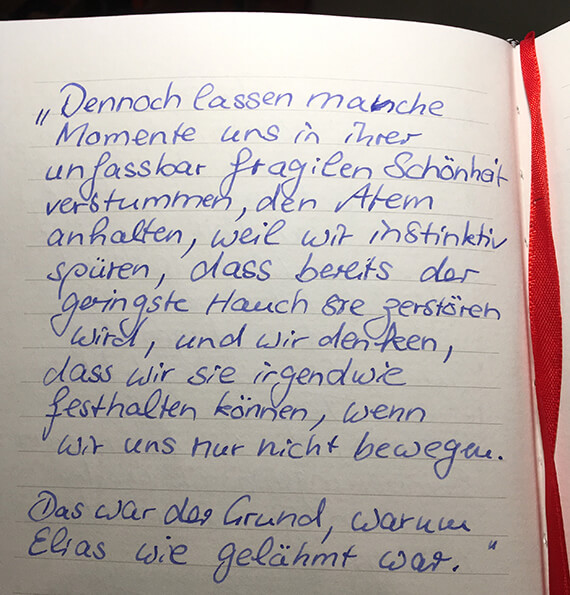 „Dennoch lassen manche
Momente uns in ihrer
unfassbar fragilen Schönheit
verstummen, den Atem
anhalten, weil wir instinktiv
spüren, dass bereits der
geringste Hauch sie zerstören
wird, und wir denken,
dass wir sie irgendwie
festhalten können, wenn
wir uns nur nicht bewegen.
Das war der Grund, warum
Elias wie gelähmt war.“